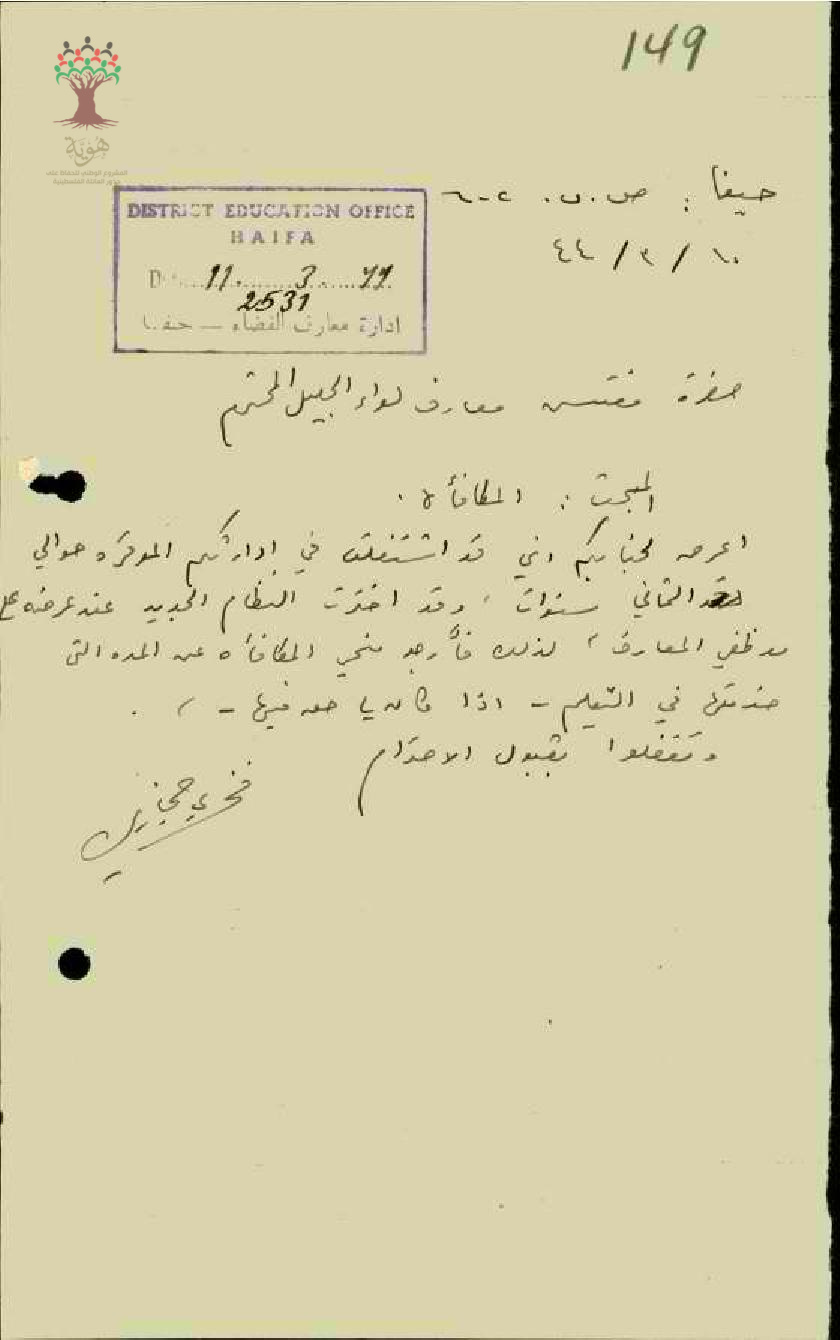 149
هوية
المشروع الوطني للحفاظ على
جذور العائلة الفلسطينية
حيفا : ص.ب. ٦٠٢
١٠/٣/٤٤
DISTRICT EDUCATION OFFICE
HAIFA
11. 3. 44
2531
ادارة معارف القضاء — حيفا
حضرة مفتش معارف لواء الجليل المحترم
المبحث : المكافأة .
اعرض لجنابكم انني قد اشتغلت في ادارتكم الموقره حوالي
الثماني سنوات ، وقد اخترت النظام الجديد عند عرضه على
موظفي المعارف ، لذلك فأرجو منحي المكافأه عن المده التي
خدمتها في التعليم - اذا كان لي حق فيها - .
وتفضلوا بقبول الاحترام
فخري حجازي